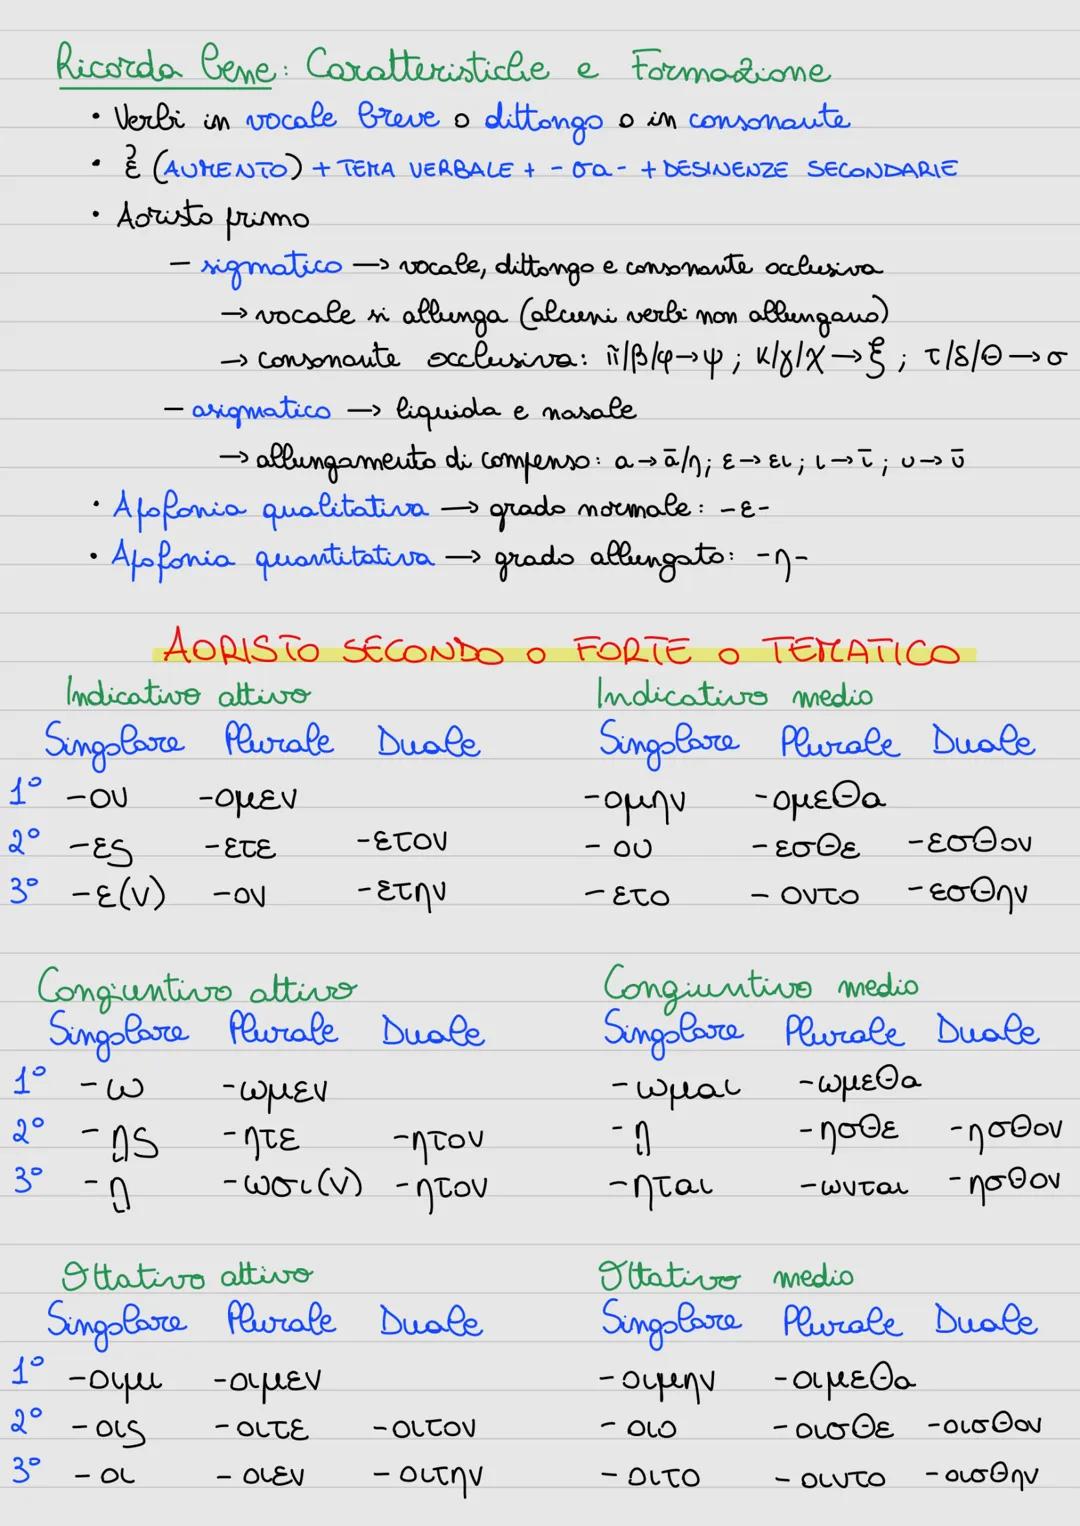 Ricorda bene: Caratteristiche e Formazione
• Verbi in vocale breve o dittongo o in consonante
• ἐ (AUMENTO) + TEMA VERBALE + -σα- + DESINENZE SECONDARIE
• Aoristo primo
- sigmatico → vocale, dittongo e consonante occlusiva
→ vocale si allunga (alcuni verbi non allungano)
→ consonante occlusiva: π/β/φ→ψ; κ/γ/χ→ξ; τ/δ/θ→σ
- asigmatico → liquida e nasale
→ allungamento di compenso: α→ᾱ/η; ε→ει; ι→ῑ; υ→ῡ
• Apofonia qualitativa → grado normale: -ε-
• Apofonia quantitativa → grado allungato: -η-
AORISTO SECONDO o FORTE o TEMATICO
Indicativo attivo Indicativo medio
Singolare Plurale Duale Singolare Plurale Duale
1° -ον -ομεν -ομην -ομεθα
2° -ες -ετε -ετον -ου -εσθε -εσθον
3° -ε(ν) -ον -ετην -ετο -οντο -εσθην
Congiuntivo attivo Congiuntivo medio
Singolare Plurale Duale Singolare Plurale Duale
1° -ω -ωμεν -ωμαι -ωμεθα
2° -ῃς -ητε -ητον -ῃ -ησθε -ησθον
3° -ῃ -ωσι(ν) -ητον -ηται -ωνται -ησθον
Ottativo attivo Ottativo medio
Singolare Plurale Duale Singolare Plurale Duale
1° -οιμι -οιμεν -οιμην -οιμεθα
2° -οις -οιτε -οιτον -οιο -οισθε -οισθον
3° -οι -οιεν -οιτην -οιτο -οιντο -οισθην